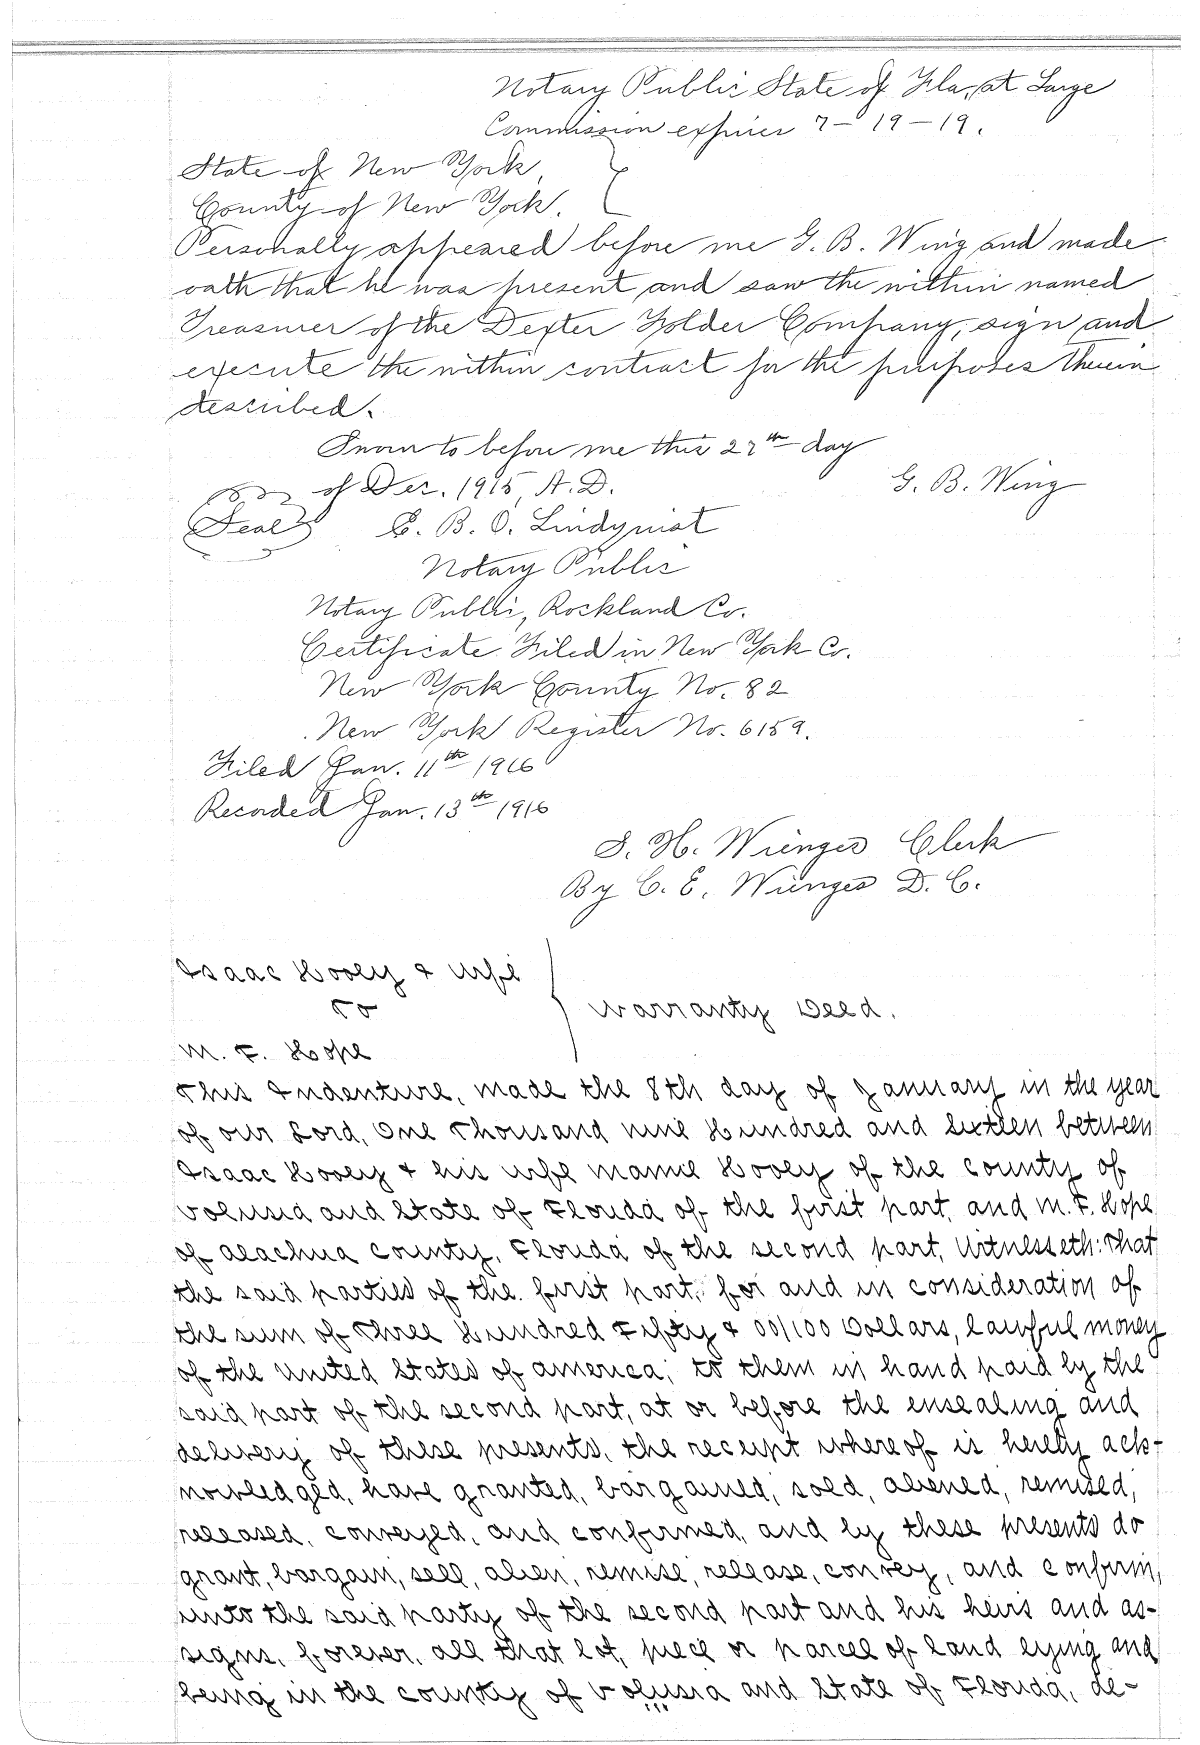 Notary Public State of Fla, at Large
Commission expires 7-19-19.
State of New York,
County of New York.
Personally appeared before me G. B. Wing and made
oath that he was present and saw the within named
Treasurer of the Dexter Folder Company, sign and
execute the within contract for the purposes therein
described.
Sworn to before me this 27th day
of Dec. 1915, A.D. G. B. Wing
Seal E. B. O. Lindquist
Notary Public
Notary Public, Rockland Co.
Certificate Filed in New York Co.
New York County No. 82
New York Register No. 6159.
Filed Jan. 11th 1916
Recorded Jan. 13th 1916
S. H. Wienges Clerk
By C. E. Wienges D. C.
Isaac Hovey & wife
To
Warranty Deed.
M. F. Hope
This Indenture, made the 8th day of January in the year
of our Lord, One Thousand nine Hundred and Sixteen between
Isaac Hovey & his wife Mamie Hovey of the County of
Volusia and State of Florida of the first part, and M. F. Hope
of Alachua County, Florida of the second part, Witnesseth: That
the said parties of the first part, for and in consideration of
the sum of Three Hundred Fifty & 00/100 Dollars, lawful money
of the United States of America, to them in hand paid by the
said part of the second part, at or before the ensealing and
delivery of these presents, the receipt whereof is hereby ack-
nowledged, have granted, bargained, sold, aliened, remised,
released, conveyed, and confirmed, and by these presents do
grant, bargain, sell, alien, remise, release, convey, and confirm,
unto the said party of the second part and his heirs and as-
signs, forever, all that lot, piece or parcel of land lying and
being in the County of Volusia and State of Florida, de-